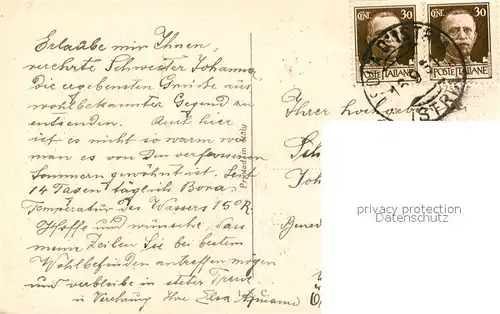 Erlaube mir Ihnen,
verehrte Schwester Johanna
die ergebensten Grüsse aus
wohlbekannter Gegend zu
entsenden. Auch hier
ist es nicht so warm wie
man es von den verflossenen
Sommern gewöhnt ist. Seit
14 Tagen täglich Bora
Temperatur des Wassers 15° R.
Hoffe und wünsche, dass
meine Zeilen Sie bei bestem
Wohlbefinden antreffen mögen
und verbleibe in steter Treue
in Verehrung Ihre Elsa
Printed in Italy
CENT. 30
POSTE ITALIANE
CENT. 30
POSTE ITALIANE
Ihrer hoch
Sch
Joh
privacy protection
Datenschutz